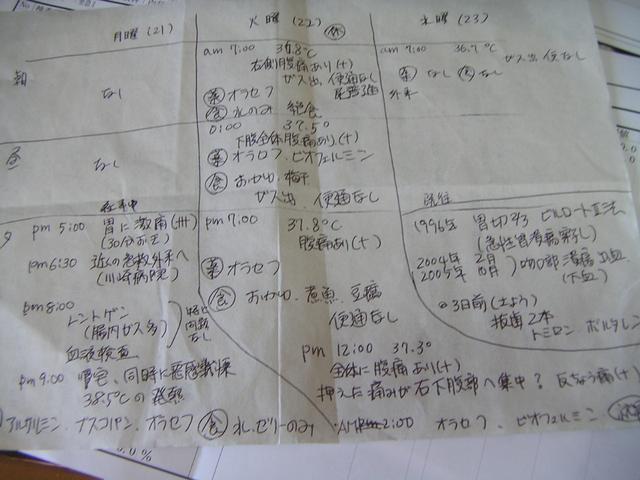 月曜(21)
朝
なし
昼
なし
夕
仕事中
pm 5:00 胃に激痛(卅)
(30分ほど)
pm 6:30 近くの急救外来へ
(川崎病院)
pm 8:00
レントゲン
(腸内ガス多)
血液検査
特に問題なし
pm 9:00 帰宅、同時に悪感戦慄
38.5℃の発熱
ナスコパン、オラセフ 食 氷、ゼリーのみ
火曜(22) 休
am 7:00 36.8℃
右側腹痛あり(+)
ガス出、便通なし
薬 オラセフ 尿普通
食 水のみ 絶食
0:00 37.5°
下腹全体腹痛あり(+)
薬 オラセフ、ビオフェルミン
食 おかゆ、梅干
ガス出、便通なし
pm 7:00 37.8℃
腹痛あり(+)
薬 オラセフ
食 おかゆ、煮魚、豆腐
便通なし
pm 12:00 37.3°
全体に腹痛あり(+)
押えた痛みが右下腹部へ集中? 反ちょう痛(+)
2:00 オラセフ、ビオフェルミン
水曜(23)
am 7:00 36.7℃ ガス出、便なし
薬 なし 食 なし
外来
既往
1996年 胃切2/3 ビルロートII法
(急性胃潰瘍
2004年 2月
2005年
吻合部潰瘍出血
(下血)
3日前(土よう)
抜歯2本
トミロン ボルタレン